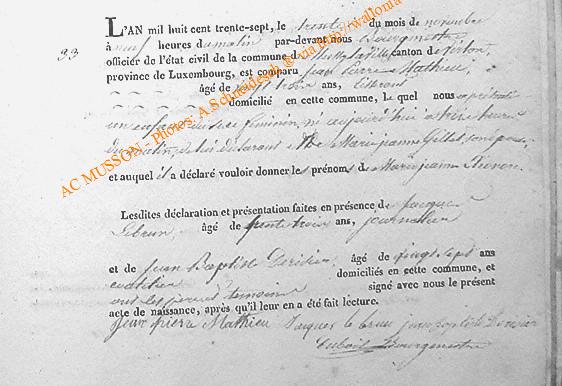 33
L'AN mil huit cent trente-sept, le trente du mois de novembre
à neuf heures du matin par-devant nous Bourgmestre
officier de l'état civil de la commune de canton de
province de Luxembourg, est comparu Jean Pierre Mathieu,
âgé de vingt trois ans,
domicilié en cette commune, Lequel nous a présenté
un enfant du sexe féminin, né aujourd'hui à heures
du matin, de lui déclarant et de Marie jeanne Gillet, son
et auquel il a déclaré vouloir donner les prénoms de Marie jeanne
Lesdites déclaration et présentation faites en présence de Jacques
Lebrun, âgé de trente trois ans, journalier
et de Jean Baptiste âgé de vingt sept ans
domiciliés en cette commune, et
ont les témoins signé avec nous le présent
acte de naissance, après qu'il leur en a été fait lecture.
Jean pierre Mathieu Jacques le brun jean baptiste
Dubois Bourgmestre
AC MUSSON - Photos: A.Schneidesch @ via http://wallonia